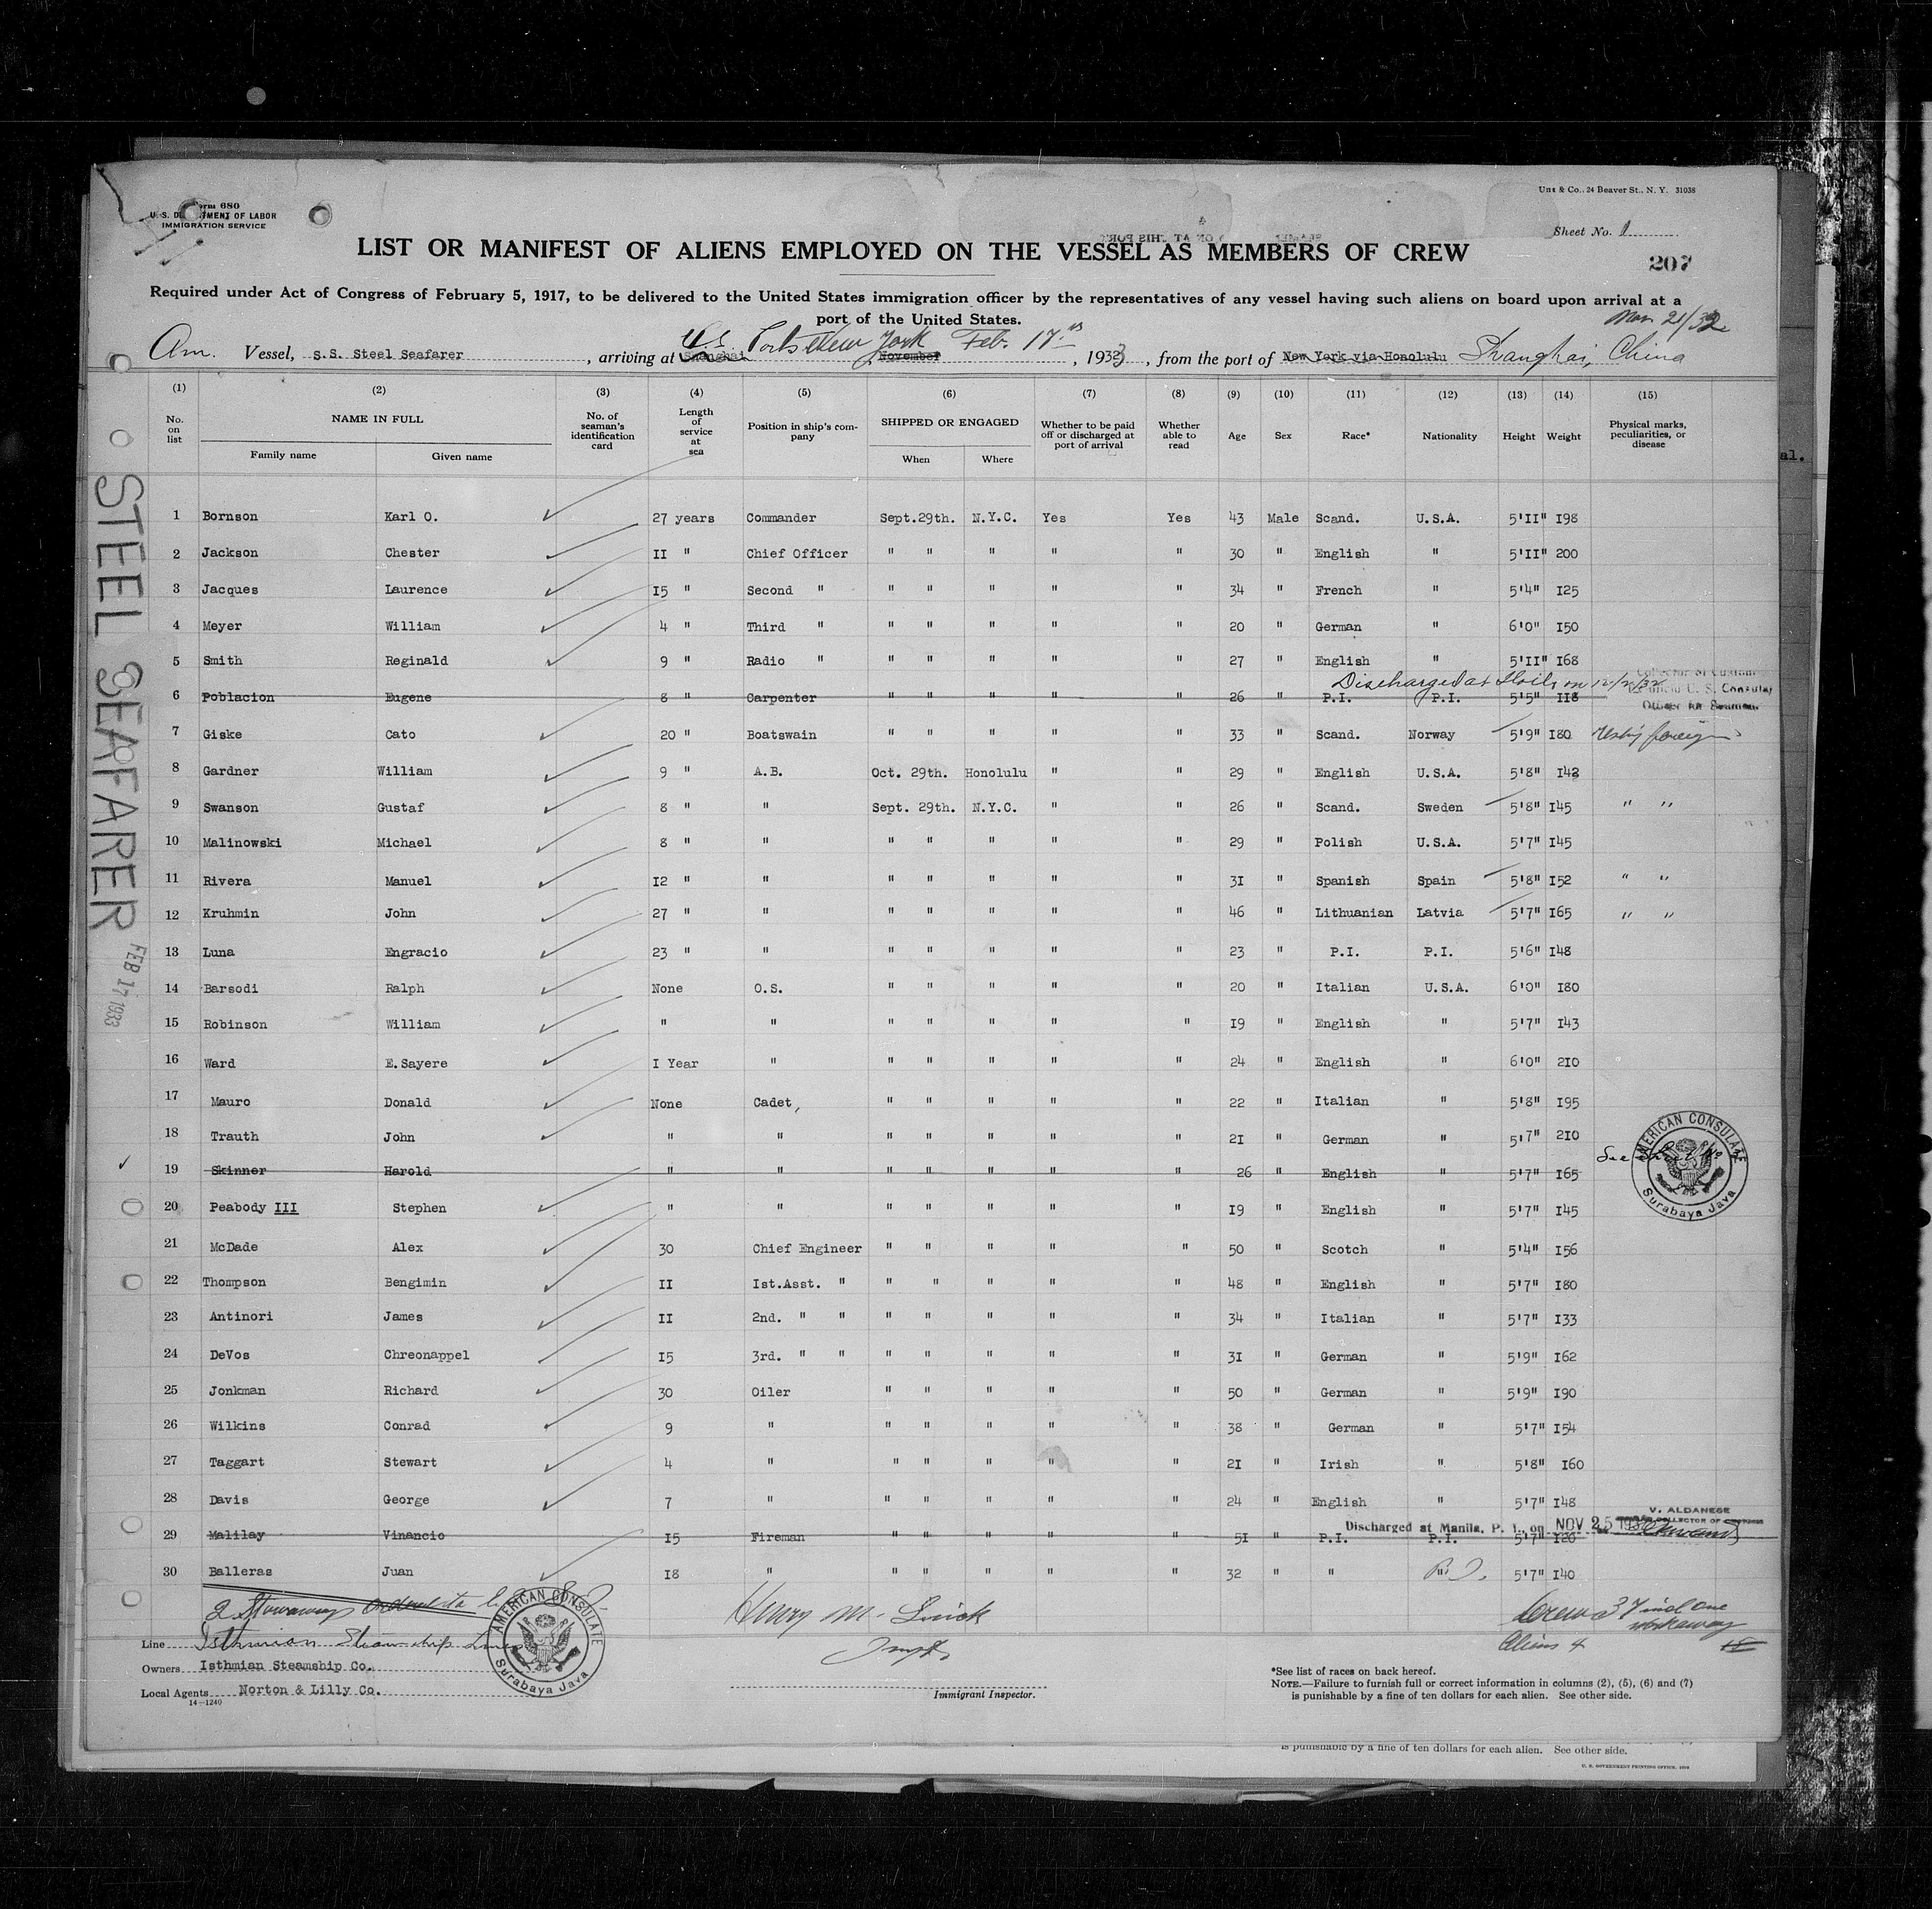 Unz & Co., 24 Beaver St., N. Y. 31038
Form 680
U. S. DEPARTMENT OF LABOR
IMMIGRATION SERVICE
Sheet No. 1
LIST OR MANIFEST OF ALIENS EMPLOYED ON THE VESSEL AS MEMBERS OF CREW
207
Required under Act of Congress of February 5, 1917, to be delivered to the United States immigration officer by the representatives of any vessel having such aliens on board upon arrival at a
port of the United States.
Am. Vessel, S.S. Steel Seafarer, arriving at Shanghai U.S. Ports New York November Feb. 17th, 1933, from the port of New York via Honolulu Shanghai, China
(1) (2) (3) (4) (5) (6) (7) (8) (9) (10) (11) (12) (13) (14) (15)
No. on list NAME IN FULL Family name Given name No. of seaman's identification card Length of service at sea Position in ship's company SHIPPED OR ENGAGED When Where Whether to be paid off or discharged at port of arrival Whether able to read Age Sex Race* Nationality Height Weight Physical marks, peculiarities, or disease
1 Bornson Karl O. 27 years Commander Sept.29th. N.Y.C. Yes Yes 43 Male Scand. U.S.A. 5'II" I98
2 Jackson Chester II " Chief Officer " " " " " 30 " English " 5'II" 200
3 Jacques Laurence I5 " Second " " " " " " 34 " French " 5'4" I25
4 Meyer William 4 " Third " " " " " " 20 " German " 6'0" I50
5 Smith Reginald 9 " Radio " " " " " " 27 " English " 5'II" I68
Discharged at Iloilo on
6 Poblacion Eugene 8 " Carpenter " " " " " 26 " P.I. P.I. 5'5" II8
7 Giske Cato 20 " Boatswain " " " " " 33 " Scand. Norway 5'9" I80 foreign
8 Gardner William 9 " A.B. Oct. 29th. Honolulu " " 29 " English U.S.A. 5'8" I42
9 Swanson Gustaf 8 " " Sept. 29th. N.Y.C. " " 26 " Scand. Sweden 5'8" I45 " "
10 Malinowski Michael 8 " " " " " " " 29 " Polish U.S.A. 5'7" I45
11 Rivera Manuel I2 " " " " " " " 3I " Spanish Spain 5'8" I52 " "
12 Kruhmin John 27 " " " " " " " 46 " Lithuanian Latvia 5'7" I65 " "
13 Luna Engracio 23 " " " " " " " 23 " P.I. P.I. 5'6" I48
14 Barsodi Ralph None O.S. " " " " " 20 " Italian U.S.A. 6'0" I80
15 Robinson William " " " " " " " I9 " English " 5'7" I43
16 Ward E.Sayere I Year " " " " " " 24 " English " 6'0" 2I0
17 Mauro Donald None Cadet, " " " " " 22 " Italian " 5'8" I95
18 Trauth John " " " " " " " 2I " German " 5'7" 2I0
19 Skinner Harold " " " " " " " 26 " English " 5'7" I65 See
20 Peabody III Stephen " " " " " " " I9 " English " 5'7" I45
21 McDade Alex 30 Chief Engineer " " " " " 50 " Scotch " 5'4" I56
22 Thompson Bengimin II Ist.Asst. " " " " " " 48 " English " 5'7" I80
23 Antinori James II 2nd. " " " " " " " 34 " Italian " 5'7" I33
24 DeVos Chreonappel I5 3rd. " " " " " " " 3I " German " 5'9" I62
25 Jonkman Richard 30 Oiler " " " " " 50 " German " 5'9" I90
26 Wilkins Conrad 9 " " " " " " 38 " German " 5'7" I54
27 Taggart Stewart 4 " " " " " " 2I " Irish " 5'8" I60
28 Davis George 7 " " " " " " 24 " English " 5'7" I48
V. ALDANESE
Discharged at Manila, P. I., on NOV 25 193 COLLECTOR OF CUSTOMS
29 Malilay Vinancio I5 Fireman " " " " " 5I " P.I. P.I. 5'7" I20
30 Balleras Juan I8 " " " " " " 32 " " P.I. 5'7" I40
STEEL SEAFARER
FEB 17 1933
AMERICAN CONSULATE
Surabaya Java
2 Stowaways
AMERICAN CONSULATE
Surabaya Java
Henry M.
Crew 37 incl one
workaway
Aliens 4
Line Isthmian Steamship Lines
Owners Isthmian Steamship Co.
Local Agents Norton & Lilly Co.
14—1240
Immigrant Inspector.
*See list of races on back hereof.
NOTE.—Failure to furnish full or correct information in columns (2), (5), (6) and (7)
is punishable by a fine of ten dollars for each alien. See other side.
is punishable by a fine of ten dollars for each alien. See other side.
U. S. GOVERNMENT PRINTING OFFICE